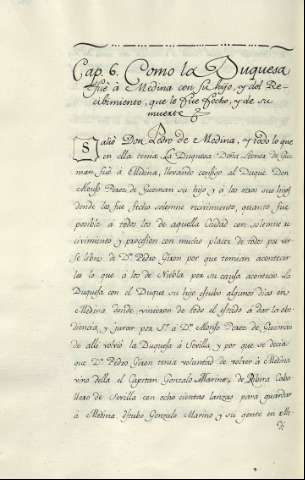 Cap. 6. Como la Duquesa
fué á Medina con su hijo, y del Re-
cibimiento, que le fue fecho, y de su
muerte
Salió Don Pedro de Medina, y todo lo que
en ella tenia La Duquesa Doña Leonor de Guz-
man fué á Medina, llevando consigo al Duque Don
Alonso Perez de Guzman su hijo y á los otros sus hijos
donde les fue fecho solemne recivimiento, quanto fue
posible á todos los de aquella Ciudad con solemne re-
civimiento y procesion con mucho placer de todos por ver
se libres de D.n Pedro Giron por que temian acontecer
les lo que á los de Niebla por su causa acontecio La
Duquesa con el Duque su hijo estubo algunos dias en
Medina donde vinieron de todo el estado á dar la obe-
diencia, y jurar por S.r á D.n Alonso Perez de Guzman
de alli volvió la Duquesa á Sevilla y por que se decia
que D.n Pedro Giron tenia voluntad de volver á Medina
vino della el Capitan Gonzalo Marino, de Ribera Caba
llero de Sevilla con ocho cientas lanzas para guardar
á Medina estubo Gonzalo Marino y su gente en Me